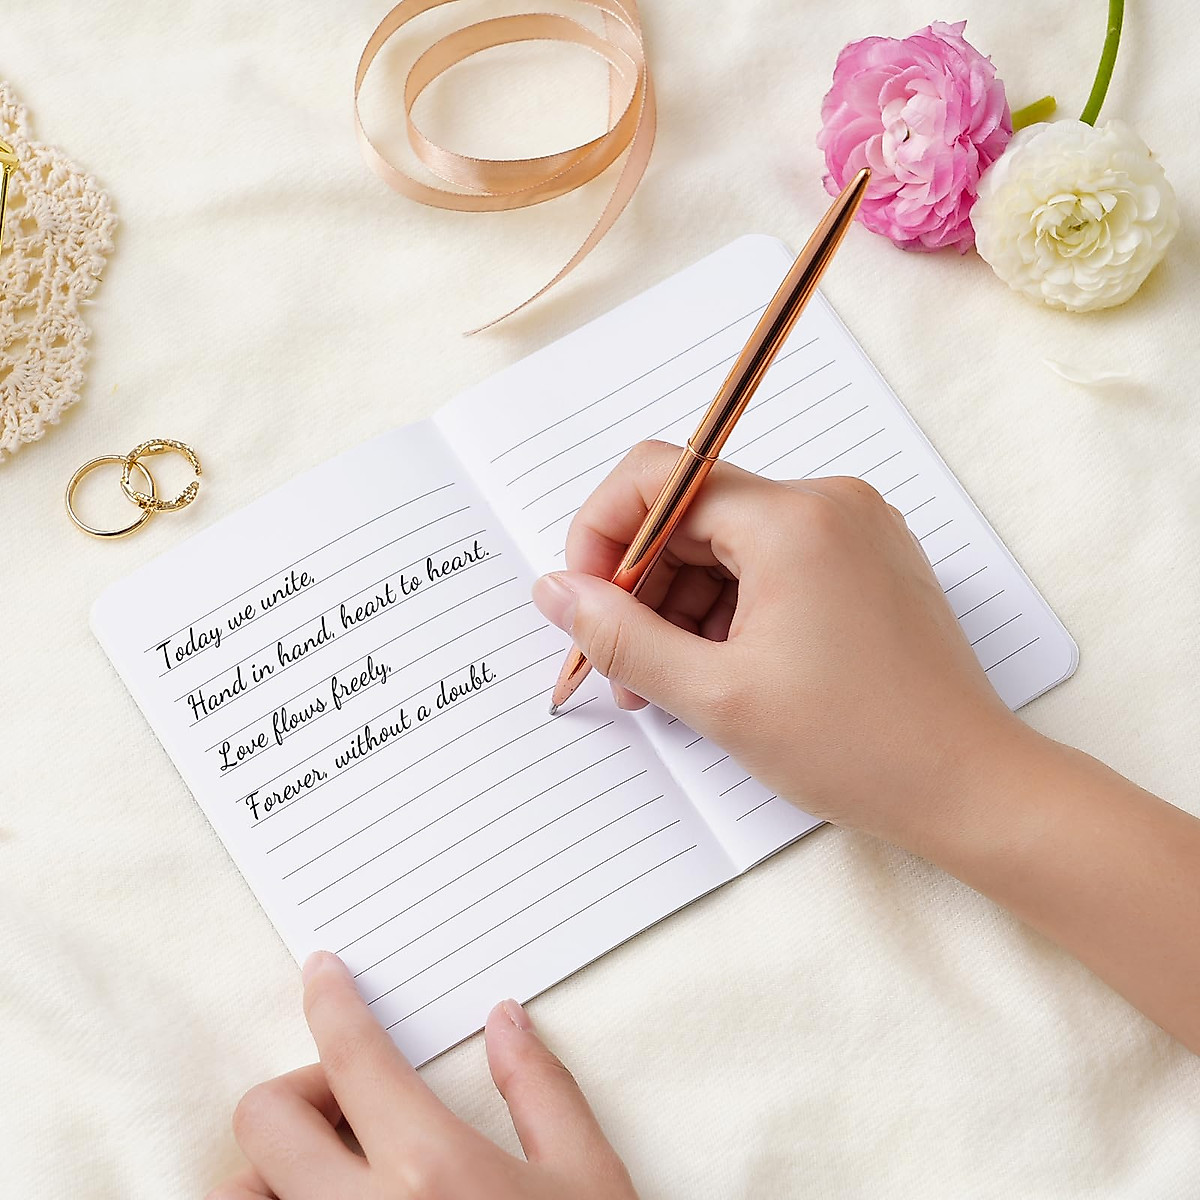 Today we unite,
Hand in hand, heart to heart.
Love flows freely,
Forever, without a doubt.